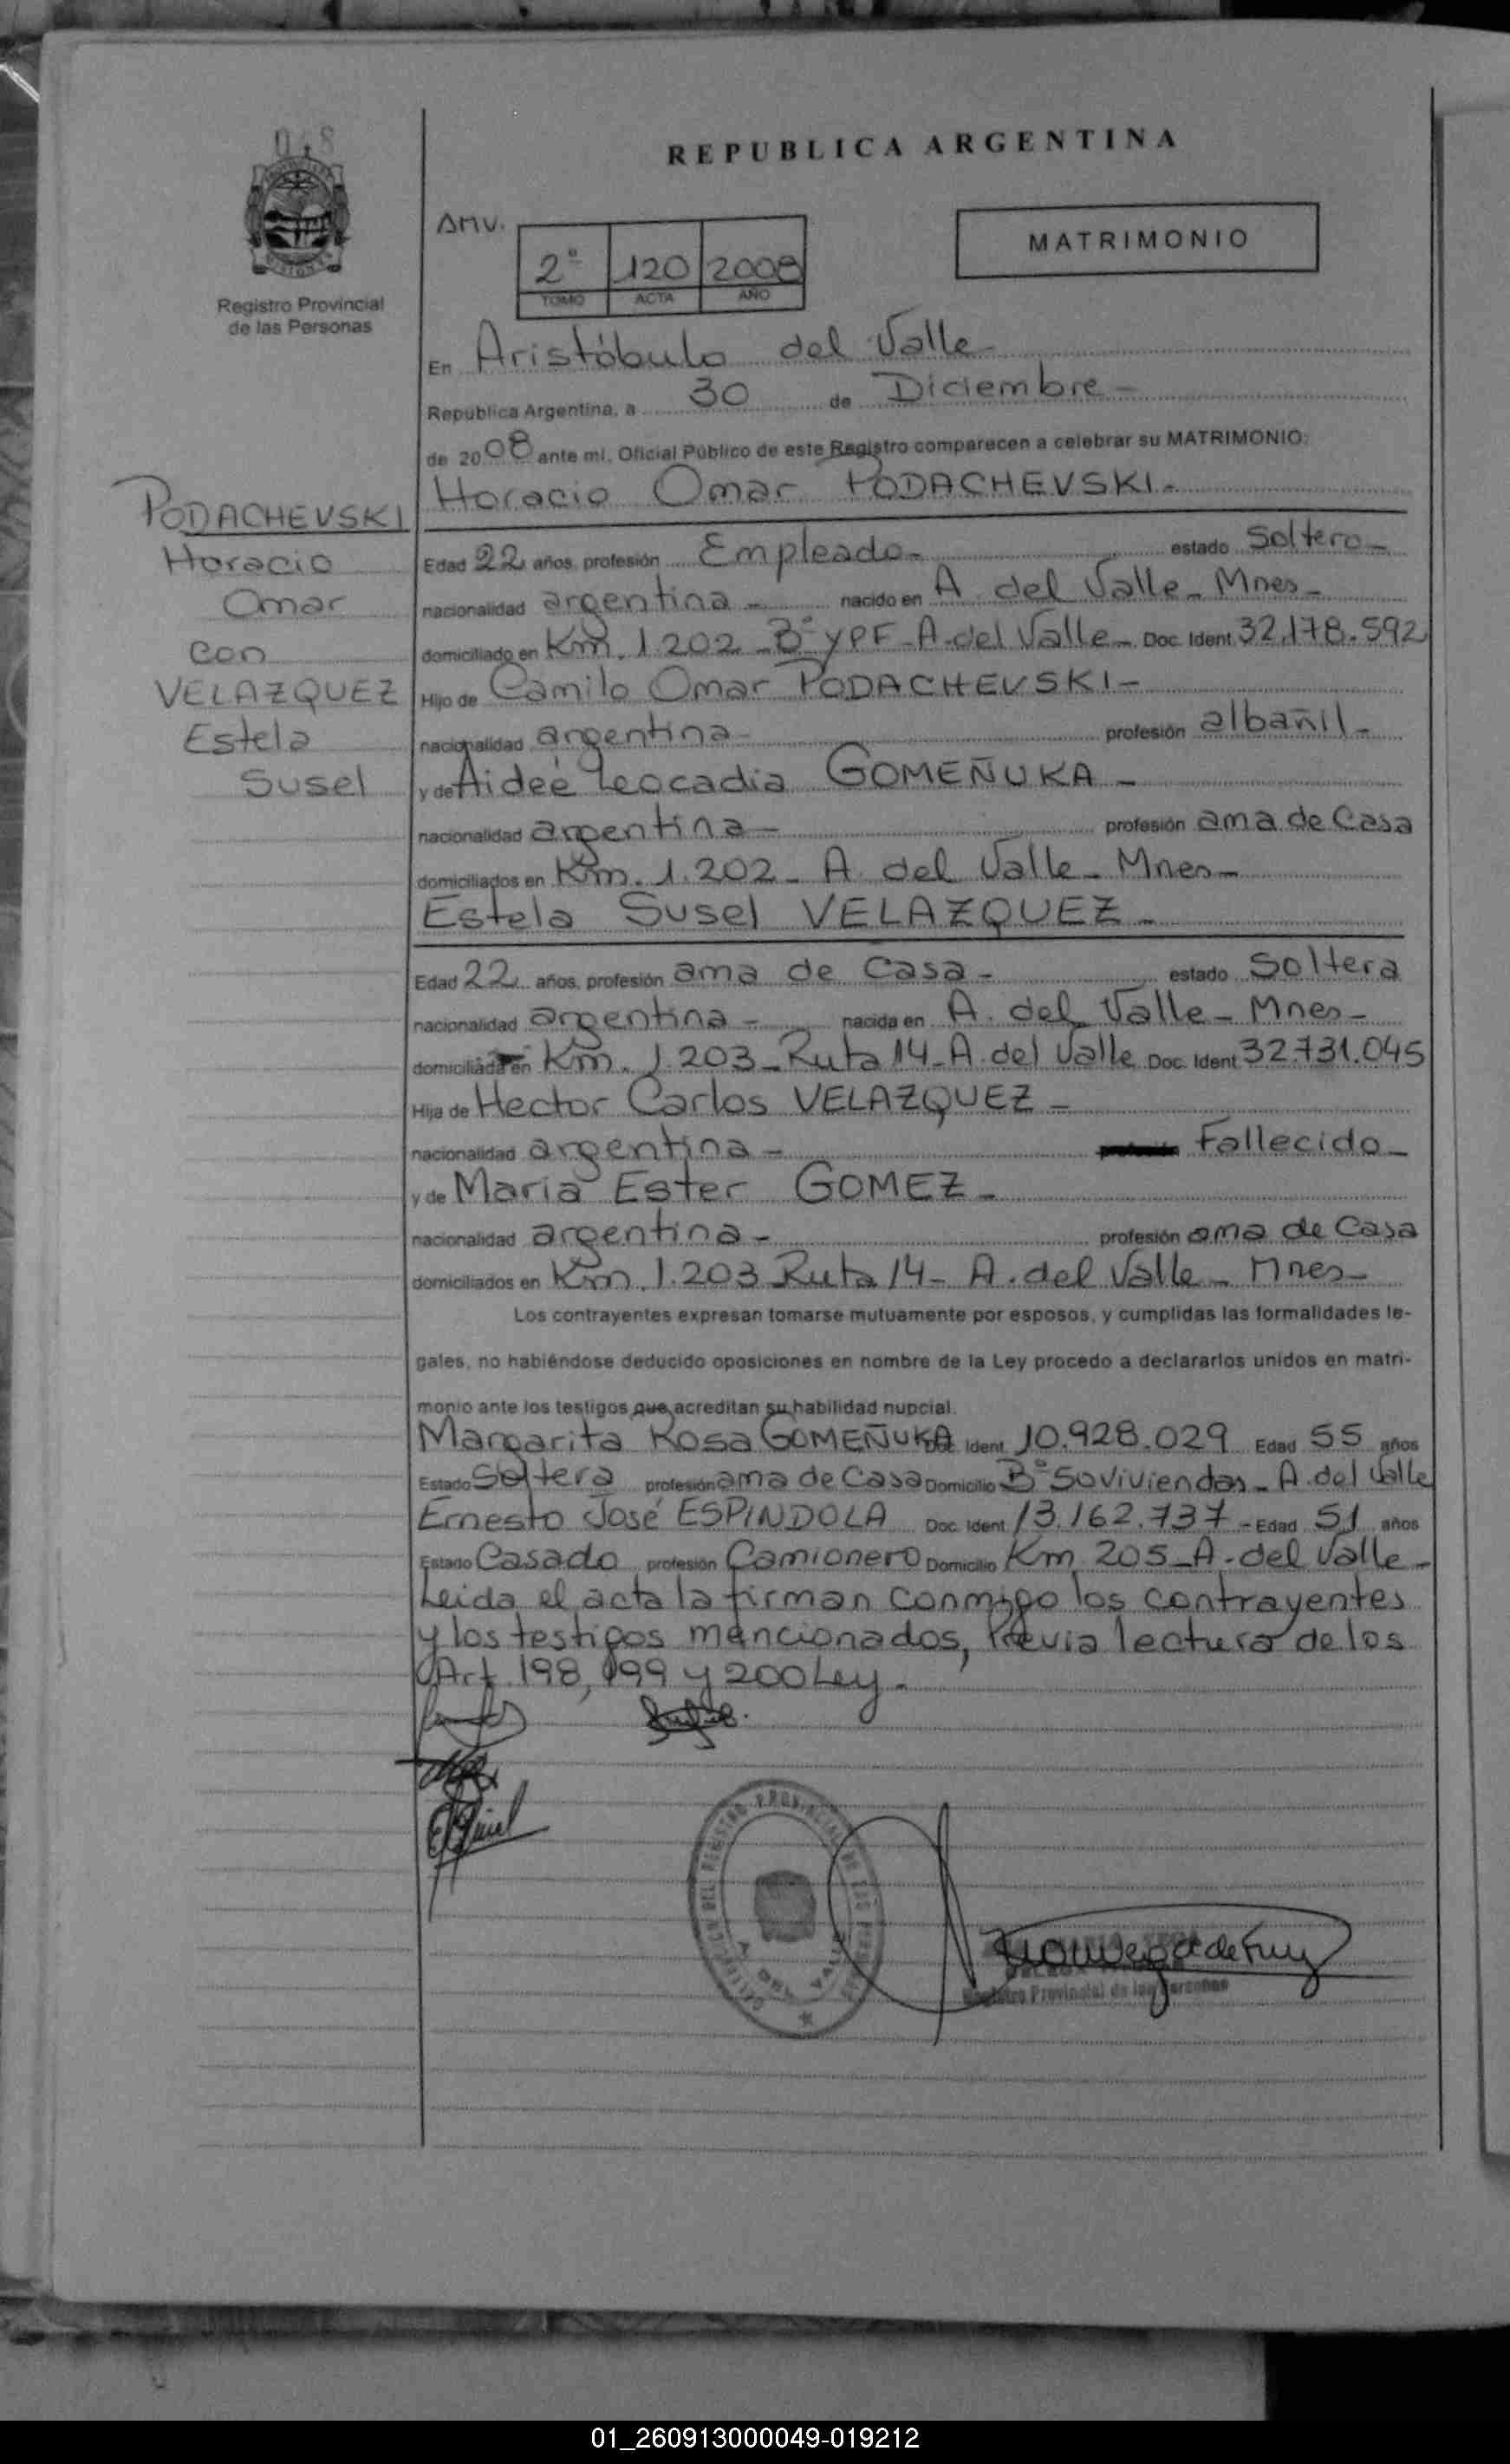 018
REPUBLICA ARGENTINA
AMV.
2º 120 2008
TOMO ACTA AÑO
MATRIMONIO
Registro Provincial
de las Personas
En Aristóbulo del Valle-
Republica Argentina, a 30 de Diciembre-
de 2008 ante mi, Oficial Público de este Registro comparecen a celebrar su MATRIMONIO:
Horacio Omar PODACHEVSKI-
PODACHEVSKI
Horacio
Omar
con
VELAZQUEZ
Estela
Susel
Edad 22 años, profesión Empleado- estado Soltero-
nacionalidad argentina- nacido en A. del Valle-Mnes-
domiciliado en Km. 1.202-Bº YPF-A.del Valle- Doc. Ident. 32.178.592
Hijo de Camilo Omar PODACHEVSKI-
nacionalidad argentina- profesión albañil-
y de Aideé Leocadia GOMEÑUKA-
nacionalidad argentina- profesión ama de Casa
domiciliados en Km. 1.202- A. del Valle-Mnes-
Estela Susel VELAZQUEZ-
Edad 22 años, profesión ama de Casa- estado Soltera
nacionalidad argentina- nacida en A. del Valle-Mnes-
domiciliada en Km. 1.203-Ruta 14-A.del Valle Doc. Ident. 32.731.045
Hija de Hector Carlos VELAZQUEZ-
nacionalidad argentina- Fallecido-
y de Maria Ester GOMEZ-
nacionalidad argentina- profesión ama de Casa
domiciliados en Km. 1.203 Ruta 14- A.del Valle-Mnes-
Los contrayentes expresan tomarse mutuamente por esposos, y cumplidas las formalidades le-
gales, no habiéndose deducido oposiciones en nombre de la Ley procedo a declararlos unidos en matri-
monio ante los testigos que acreditan su habilidad nupcial.
Margarita Rosa GOMEÑUKA Doc. Ident. 10.928.029 Edad 55 años
Estado Soltera profesión ama de Casa Domicilio Bº 50 Viviendas-A.del Valle
Ernesto José ESPINDOLA Doc. Ident. 13.162.737- Edad 51 años
Estado Casado profesión Camionero Domicilio Km. 205-A.del Valle-
Leida el acta la firman conmigo los contrayentes
y los testigos mencionados, Previa lectura de los
Art. 198, 199 y 200 Ley.-
Registro Provincial de las Personas
01_260913000049-019212